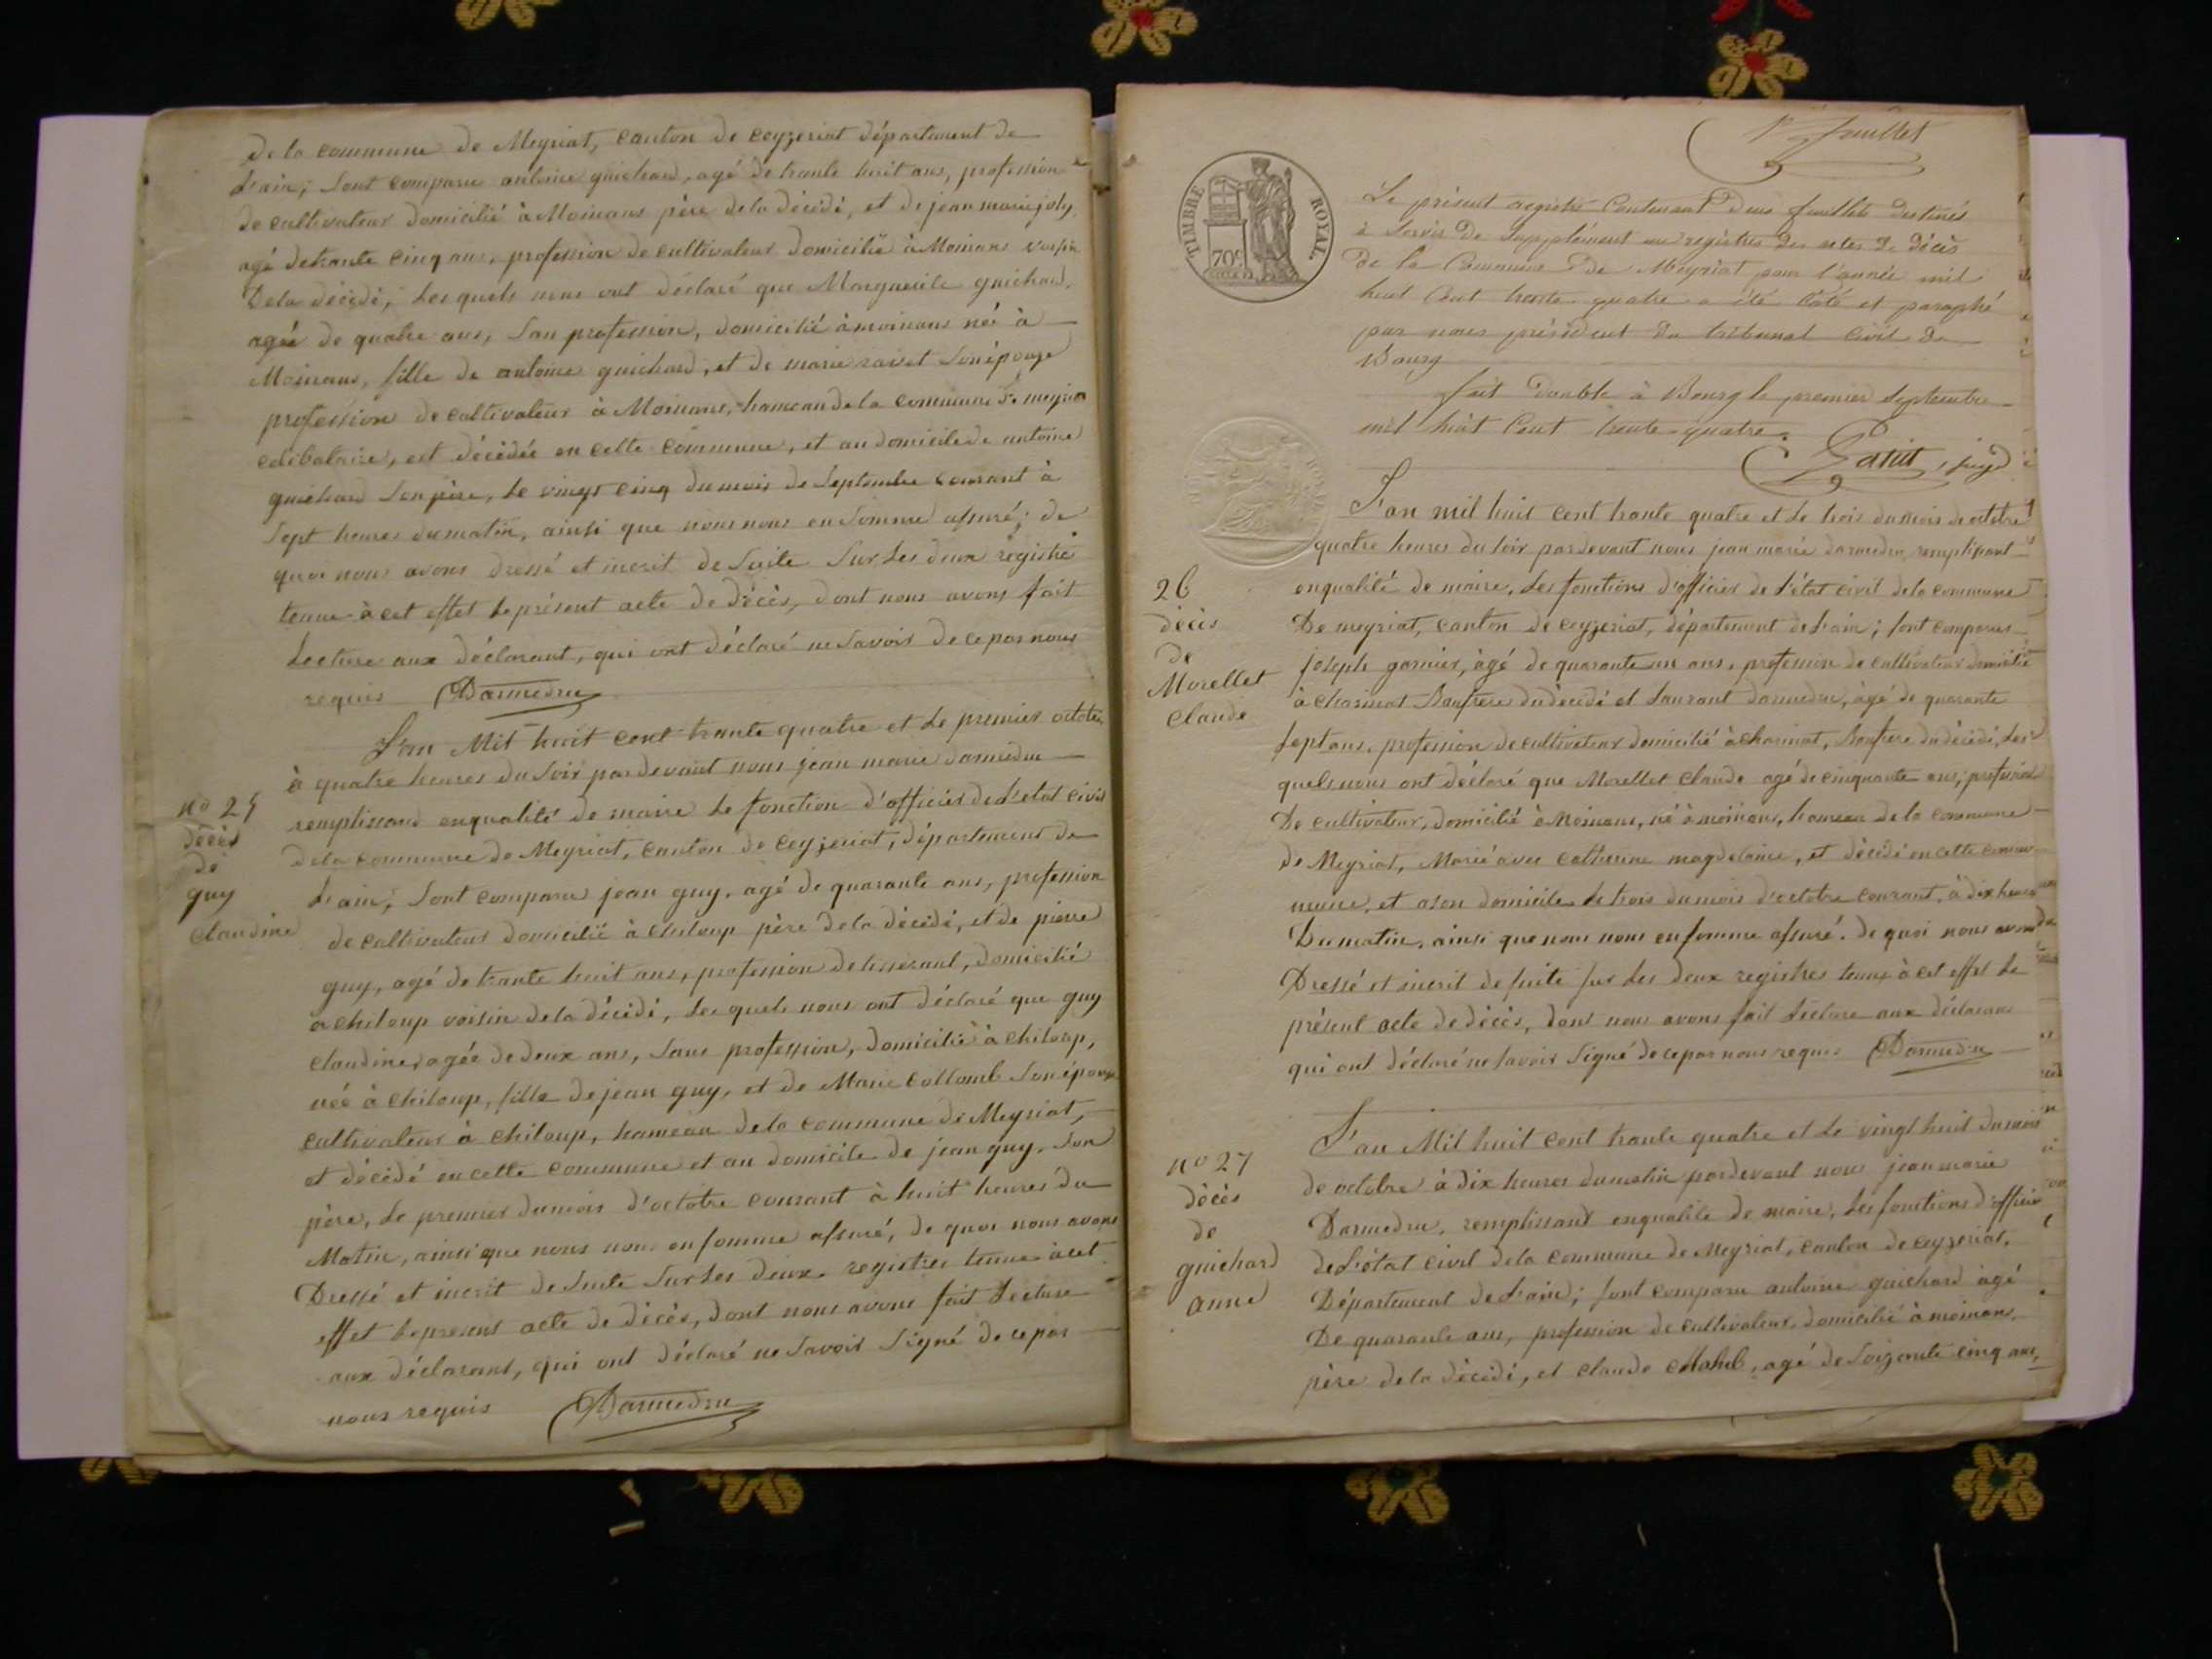 de la commune de Meyriat, canton de ceyzeriat département de
L'ain; Sont comparu antoine guichard, agé de trante huit ans, profession
de cultivateur domicilié à Moinans père de la décédé, et de jean marie joly
agé de trante cinq ans, profession de cultivateur domicilié à Moinans voisin
De la décédé, Les quels nous ont déclaré que Marguerite guichard,
agée de quatre ans, San profession, domicilié à moinans née à
Moinans, fille de antoine guichard, et de marie ravet Son épouze
profession de cultivateur à Moinans, hameau de la commune de meyriat
celibataire, est décédée en cette commune, et au domicile de antoine
guichard Son père, Le vingt cinq du mois de Septembre courant à
Sept heures du matin, ainsi que nous nous en Somme assuré; de
quoi nous avons dressé et inscrit de Suite Sur Les deux régistre
tenue à cet effet Le présent acte de décès, dont nous avons fait
Lecture aux déclarant, qui ont déclaré ne Savoir de ce par nous
requis Darmedru
L'an Mil huit cent trante quatre et Le premier octobre
à quatre heures du Soir par devant nous jean marie darmedru
no 25
décès
de
guy
claudine
remplissand en qualité de maire Le fonction d'officier de L'etat civil
de la commune de Meyriat, canton de ceyzeriat, département de
L'ain, Sont comparu jean guy, agé de quarante ans, profession
de cultivateur domicilié à chiloup père de la décédé, et de pierre
guy, agé de trante huit ans, profession de tisserant, domicilié
a chiloup voisin de la décédé, Les quels nous ont déclaré que guy
claudine, agée de deux ans, Sans profession, domicilié à chiloup,
née à chiloup, fille de jean guy, et de Marie collomb Son épouze
cultivateur à chiloup, hameau de la commune de Meyriat,
et décédé en cette commune et au domicile de jean guy, Son
père, Le premier du mois d'octobre courant à huit heures du
Matin, ainsi que nous nous en somme assuré, de quoi nous avons
Dressé et inscrit de Suite Sur Les deux registres tenue à cet
effet Le present acte de décès, dont nous avons fait Lecture
aux déclarant, qui ont déclaré ne Savoir Signé de ce par
nous requis Darmedru
1er feuillet
TIMBRE ROYAL
70c
Le présent registre Contenant deux feuillets destinés
à Servir De Supplément aux registres des actes de décès
de la Commune de Meyriat pour l'année mil
huit Cent trente quatre a été Côté et paraphé
par nous président du tribunal Civil de
Bourg
fait double à Bourg le premier Septembre
mil huit Cent trente quatre.
juge
L'an mil huit cent trante quatre et Le trois du mois de octobre
quatre heures du Soir par devant nous jean marie darmedru, remplissant
26
décès
de
Morellet
claude
en qualité de maire, Les fonctions d'officier de L'état civil de la commune
De meyriat, canton de ceyzeriat, département de L'ain; sont comparus
joseph garnier, âgé de quarante un ans, profession de cultivateur domicilié
à charinat Baufrere du décédé et Laurant darmedru, âgé de quarante
Sept ans, profession de cultivateur domicilié à charinat, Baufrere du décédé, Les
quels nous ont déclaré que Morellet claude agé de cinquante ans, profession
De cultivateur, domicilié à Moinans, né à moinans, hameau de la commune
de Meyriat, Marié avec catherine magdelaine, et décédé en cette comm
unne, et a son domicile Le trois du mois d'octobre courant, à dix heures
Du matin, ainsi que nous nous en somme assuré. de quoi nous avons
Dressé et inscrit de suite sur Les deux registres tenus à cet effet Le
présent acte de décès, dont nous avons fait Lecture aux déclarans
qui ont déclaré ne Savoir Signé de ce par nous requis Darmedru
L'an Mil huit cent trante quatre et Le vingt huit du mois
no 27
décès
de
guichard
anne
de octobre à dix heures du matin par devant nous jean marie
Darmedru, remplissant en qualité de maire, Les fonctions d'officier
de L'état civil de la commune de Meyriat, canton de ceyzeriat,
Département de L'ain; sont comparu antoine guichard âgé
De quarante ans, profession de cultivateur domicilié à moinans,
père de la décédé, et claude agé de Soizante cinq ans,